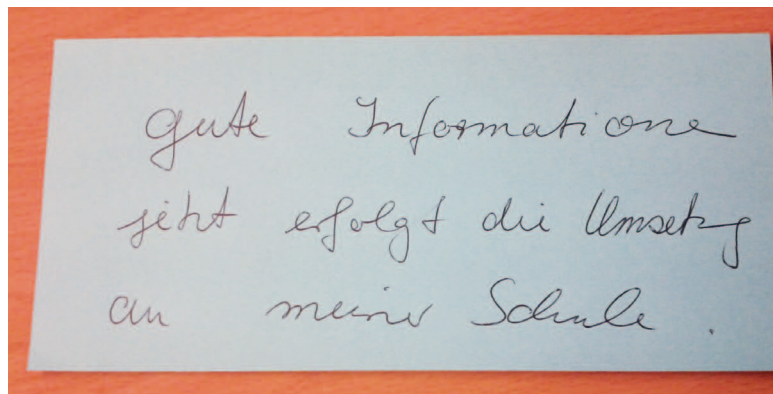 gute Informationen
jetzt erfolgt die Umsetzung
an meiner Schule.